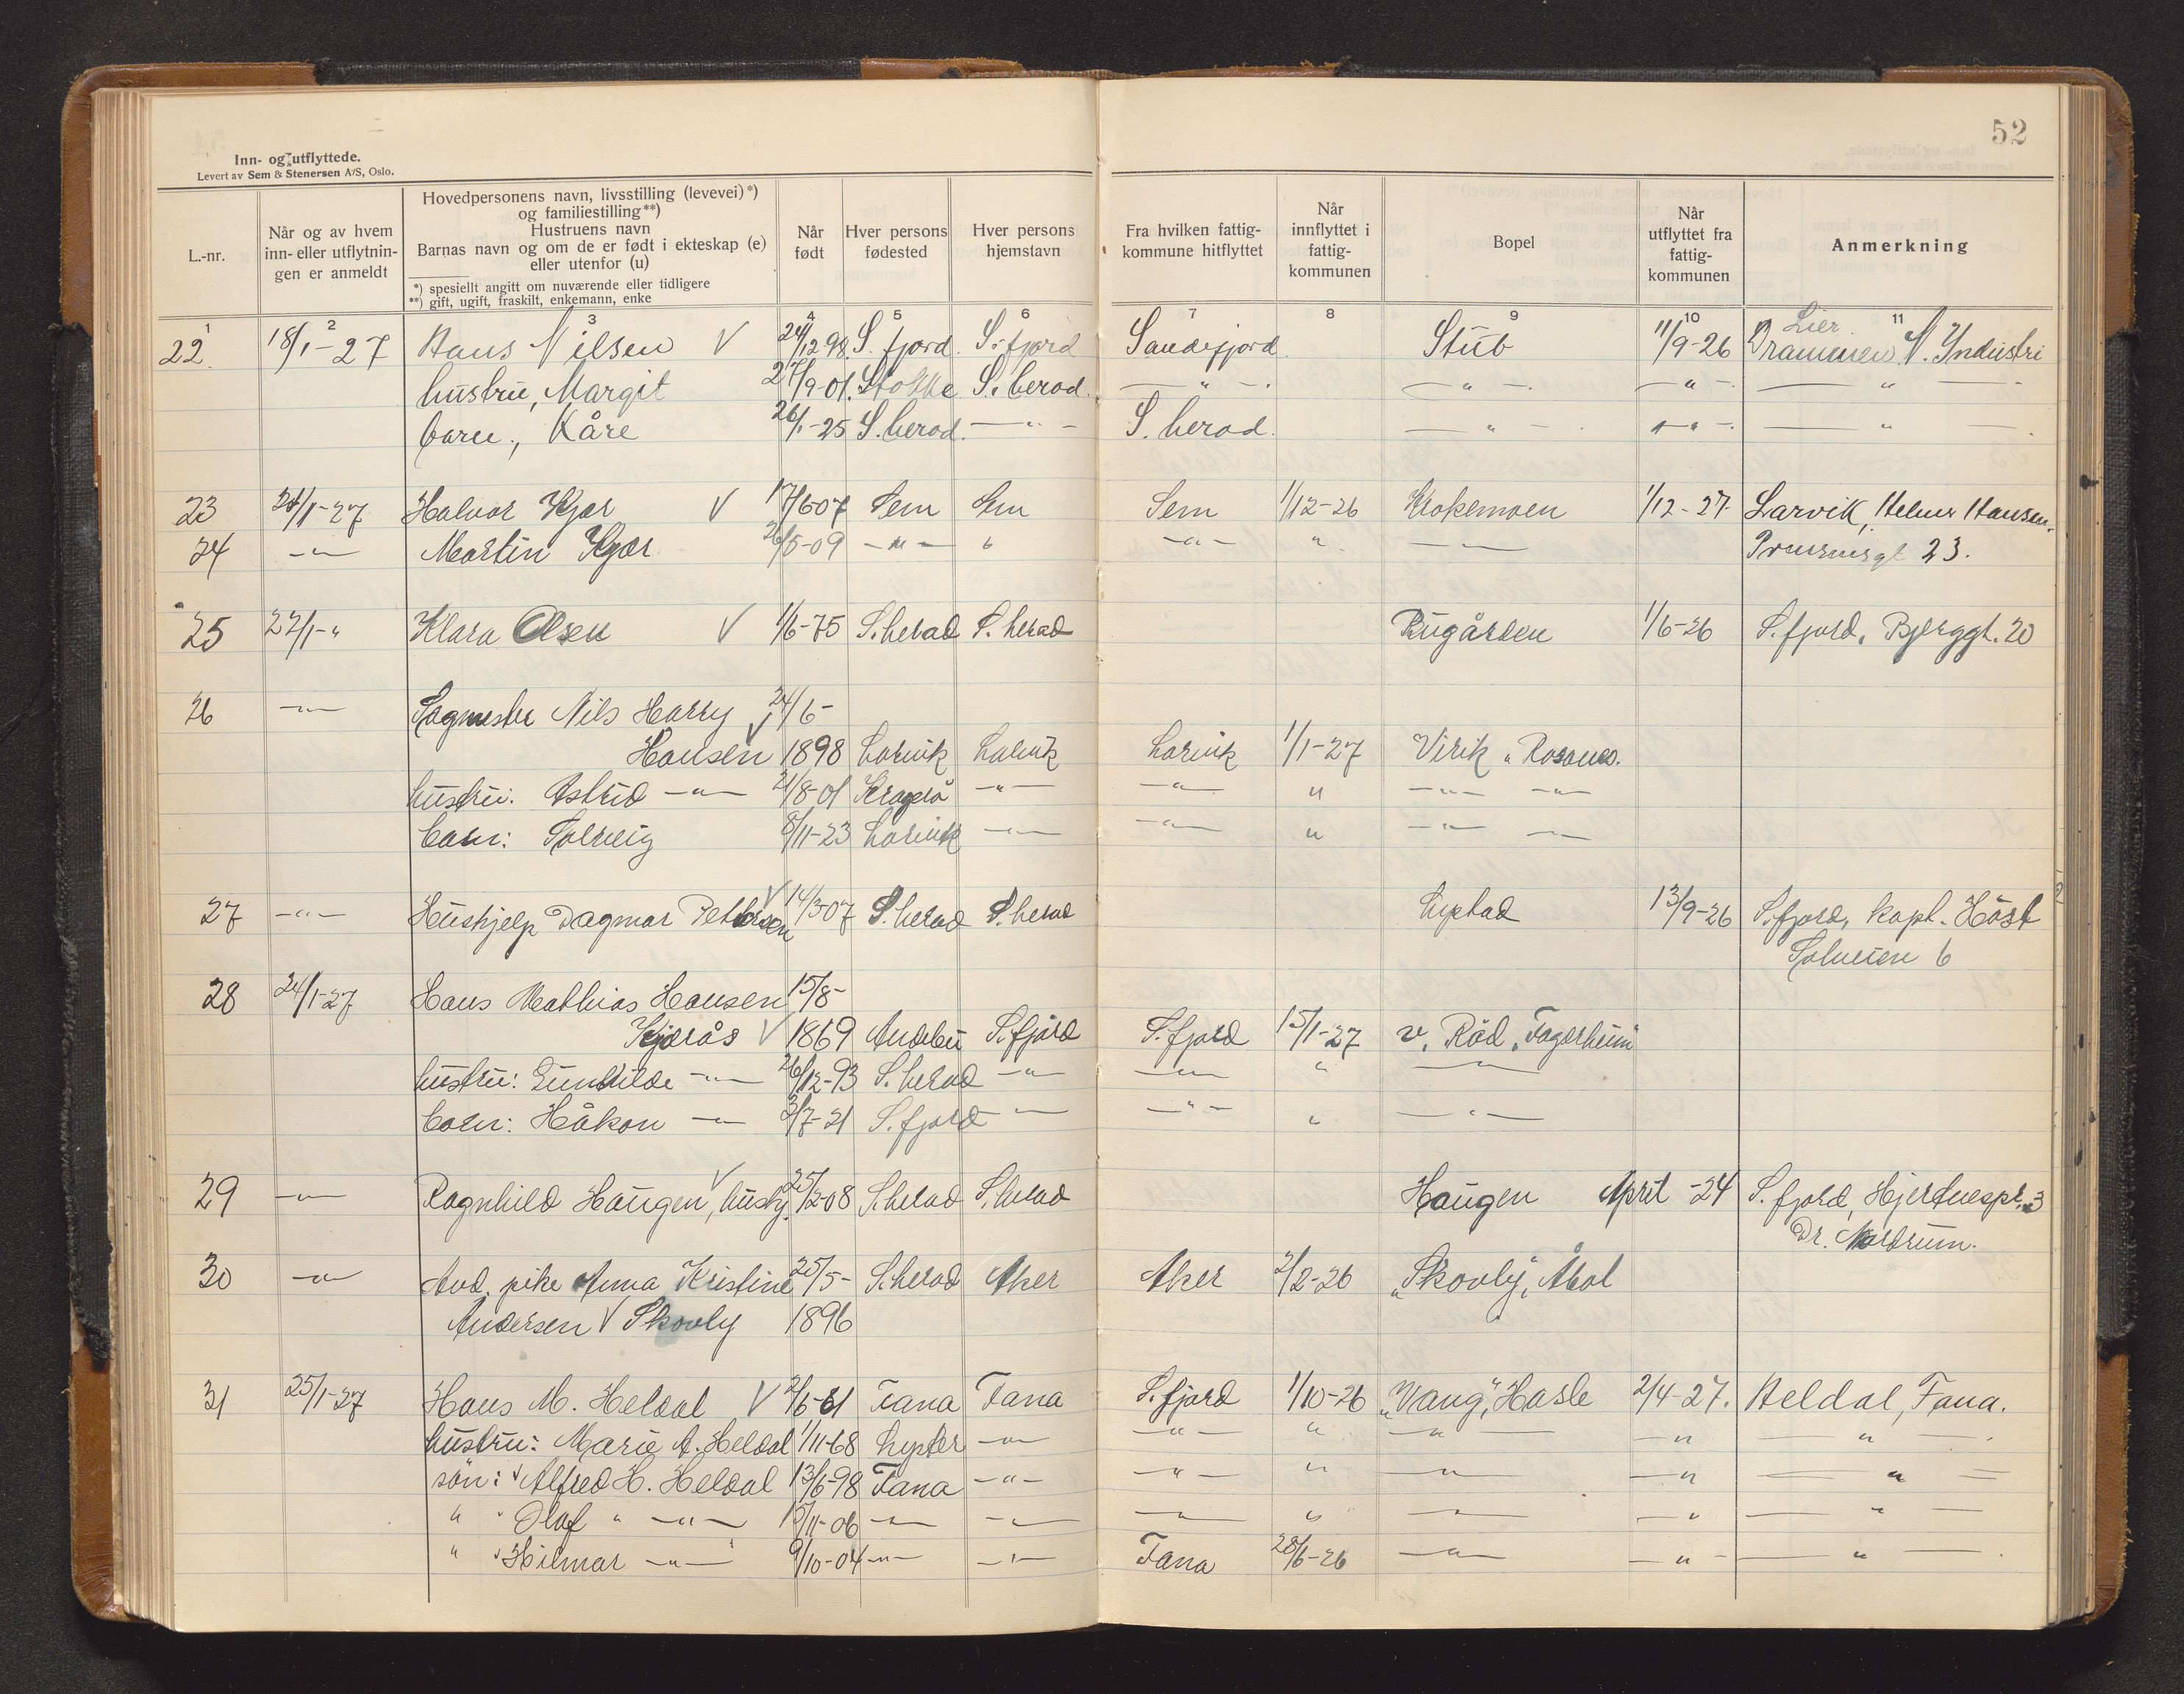 52
Inn- og utflyttede.
Levert av Sem & Stenersen A/S, Oslo.
L.-nr.
Når og av hvem inn- eller utflytnin-gen er anmeldt
Hovedpersonens navn, livsstilling (levevei)*) og familiestilling**)
Hustruens navn
Barnas navn og om de er født i ekteskap (e) eller utenfor (u)
*) spesielt angitt om nuværende eller tidligere
**) gift, ugift, fraskilt, enkemann, enke
Når født
Hver persons fødested
Hver persons hjemstavn
Fra hvilken fattig-kommune hitflyttet
Når innflyttet i fattig-kommunen
Bopel
Når utflyttet fra fattig-kommunen
Anmerkning
1 2 3 4 5 6 7 8 9 10 11
Lier.
22. 18/1-27 Hans Nilsen V 24/12-98. S. fjord. S. fjord Sandefjord. Stub 11/9-26 Drammen N. Industri
hustru, Margit 27/9-01. Stokke S. herad. — " —. — " —. — " —. — " —
barn, Kåre 26/1-25 S. herad. — " — S. herad. — " —. — " —. — " —
23 21/1-27 Halvor Kjær V 17/6-07 Sem Sem Sem 1/12-26 Krokemoen 1/12-27. Larvik, Helmer Hansen,
24 — " — Martin Kjær 26/5-09 — " — " — " — " — " — 23.
25 22/1-" Klara Olsen V 1/6-75 S. herad S. herad Bugården 1/6-26 S. fjord, Bjerggt. 20
26 — " — Sagmester Nils Harry V 24/6-
Hansen 1898 Larvik Larvik Larvik 1/1-27 Virik "Rosanes.
hustru: Astrid — " — 21/8-01 Kragerø — " — — " — " — " — — " —
barn: Solveig 8/11-23 Larvik — " — — " — " — " — — " —
27 — " — Hushjelp Dagmar Pettersen V 14/3-07 S. herad S. herad Lystad 13/9-26 S. fjord, kapt. Høst
Solveien 6
28 24/1-27 Hans Mathias Hansen 15/8-
Kjærås V 1869 Andebu S. fjord S. fjord 15/1-27 v. Råd. "Fagerheim"
hustru: Gunhilde — " — 26/12-93 S. herad — " — — " — " — " —
barn: Håkon — " — 3/7-21 S. fjord — " — — " — " — " —
29 — " — Ragnhild Haugen V, hushj. 25/2-08 S. herad S. herad Haugen April -24 S. fjord, Hjertnespr. 3
Dr. Nordrum.
30 — " — And. pike Anna Kristine 25/5- S. herad Aker Aker 2/2-26 "Skovly", Åbol
Andersen V Skovly 1896
31 25/1-27 Hans M. Heldal V 2/6-61 Fana Fana S. fjord 1/10-26 "Vang", Hasle 2/4-27. Heldal, Fana.
hustru: Marie A. Heldal 1/11-68 Lyster — " — — " — " — " — — " — — " —.
sön: V Alfred H. Heldal 13/6-98 Fana — " — — " — " — " — — " — — " —
" " Olaf " — " — 15/11-06 — " — — " — — " — " — " — — " — — " —
" V Hilmar — " — 9/10-04 — " — — " — Fana 28/6-26 — " — — " — — " —.